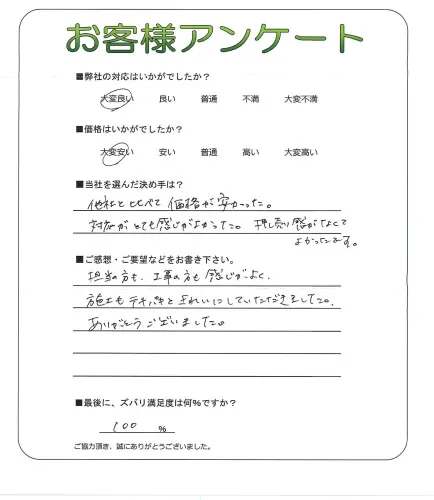 お客様アンケート
■弊社の対応はいかがでしたか?
大変良い 良い 普通 不満 大変不満
■価格はいかがでしたか?
大変安い 安い 普通 高い 大変高い
■当社を選んだ決め手は?
他社と比べて価格が安かった。
対応がとても感じがよかった。押し売り感がなくて
よかったです。
■ご感想・ご要望などをお書き下さい。
担当の方も、工事の方も感じがよく、
施工もテキパキときれいにしていただきました。
ありがとうございました。
■最後に、ズバリ満足度は何%ですか?
100 %
ご協力頂き、誠にありがとうございました。